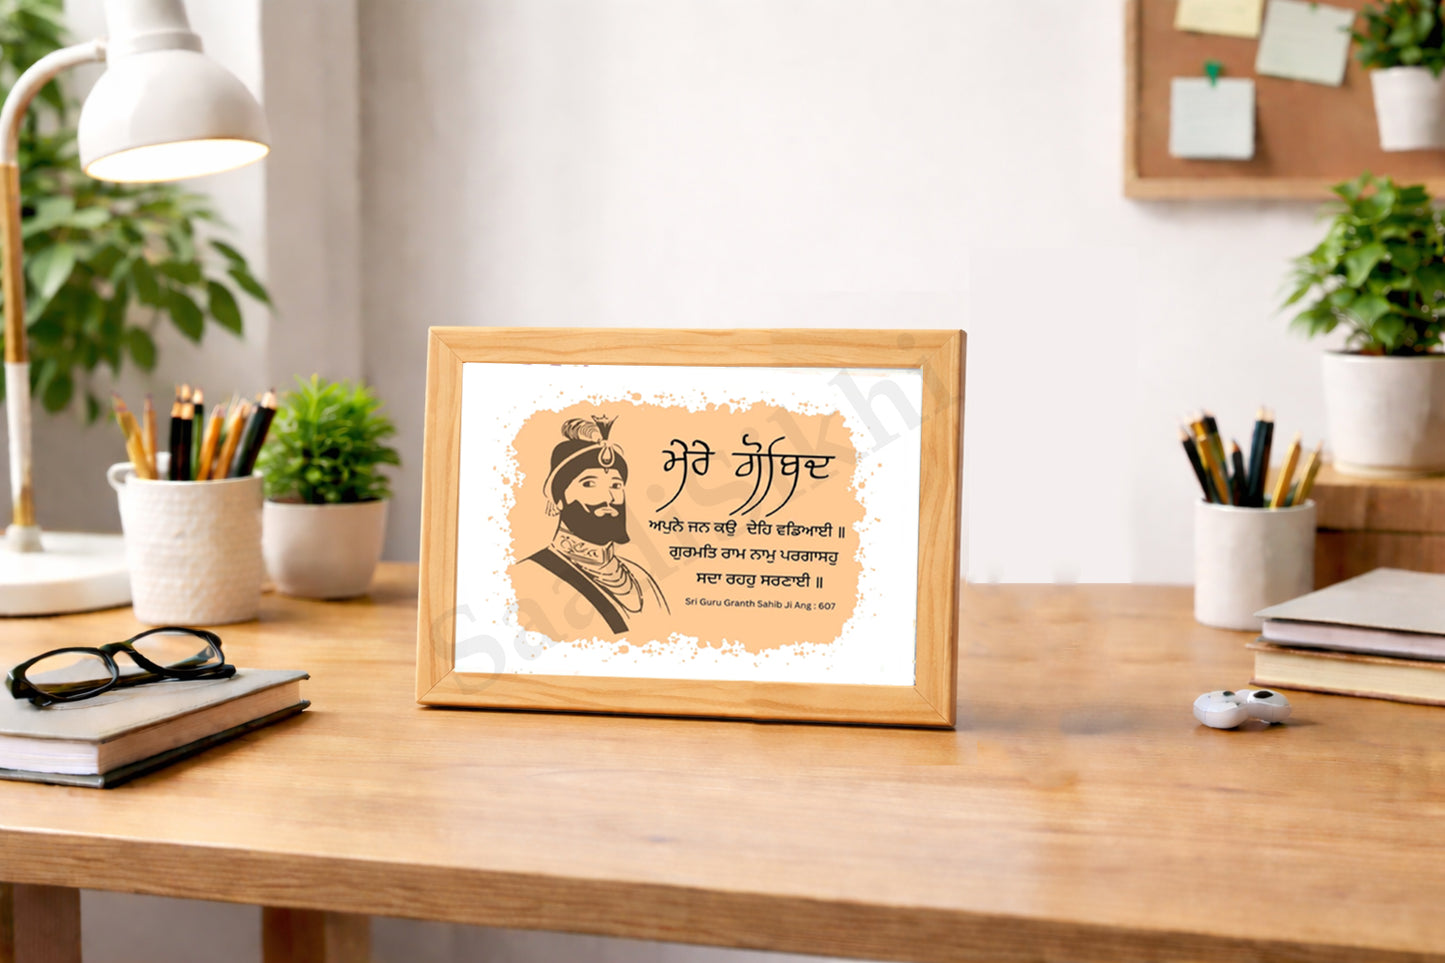 ਮੇਰੇ ਗੋਬਿਦ
ਅਪੁਨੇ ਜਨ ਕਉ ਦੇਹਿ ਵਡਿਆਈ ॥
ਗੁਰਮਤਿ ਰਾਮ ਨਾਮੁ ਪਰਗਾਸਹੁ
ਸਦਾ ਰਹਹੁ ਸਰਣਾਈ ॥
Sri Guru Granth Sahib Ji Ang : 607
SaadiSikhi